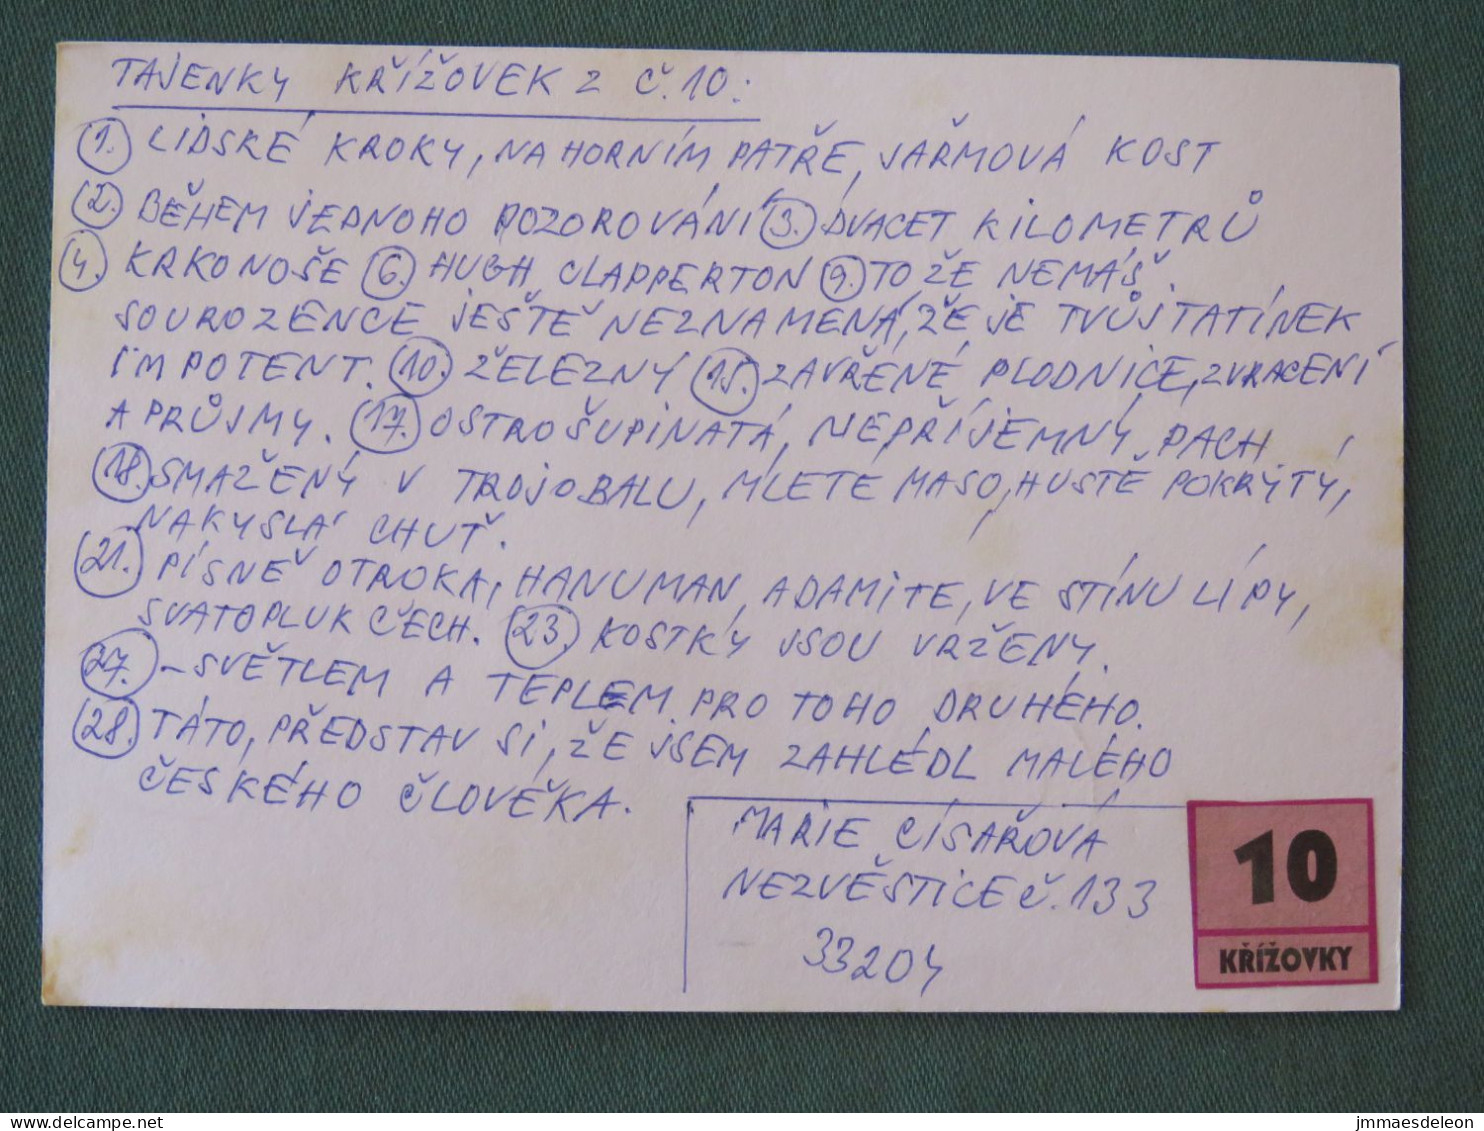 TAJENKY KŘÍŽOVEK Z Č.10:
1. LIDSKÉ KROKY, NA HORNÍM PATŘE, JAŘMOVÁ KOST
2. BĚHEM JEDNOHO POZOROVÁNÍ 3. DVACET KILOMETRŮ
4. KRKONOŠE 6. HUGH CLAPPERTON 9. TO ŽE NEMÁŠ
SOUROZENCE JEŠTĚ NEZNAMENÁ, ŽE JE TVŮJ TATÍNEK
IMPOTENT. 10. ŽELEZNÝ 15. ZAVŘENÉ PLODNICE, ZVRACENÍ
A PRŮJMY. 17. OSTROŠUPINATÁ, NEPŘÍJEMNÝ PACH
18. SMAŽENÝ V TROJOBALU, MLETÉ MASO, HUSTĚ POKRYTÝ,
NAKYSLÁ CHUŤ.
21. PÍSNĚ OTROKA, HANUMAN, ADAMITÉ, VE STÍNU LÍPY,
SVATOPLUK ČECH. 23. KOSTKY JSOU VRŽENY.
27. - SVĚTLEM A TEPLEM PRO TOHO DRUHÉHO.
28. TÁTO, PŘEDSTAV SI, ŽE JSEM ZAHLÉDL MALÉHO
ČESKÉHO ČLOVĚKA.
MARIE CÍSAŘOVÁ
NEZVĚSTICE Č. 133
33204
10
KŘÍŽOVKY
delcampe.net
jmmaesdeleon